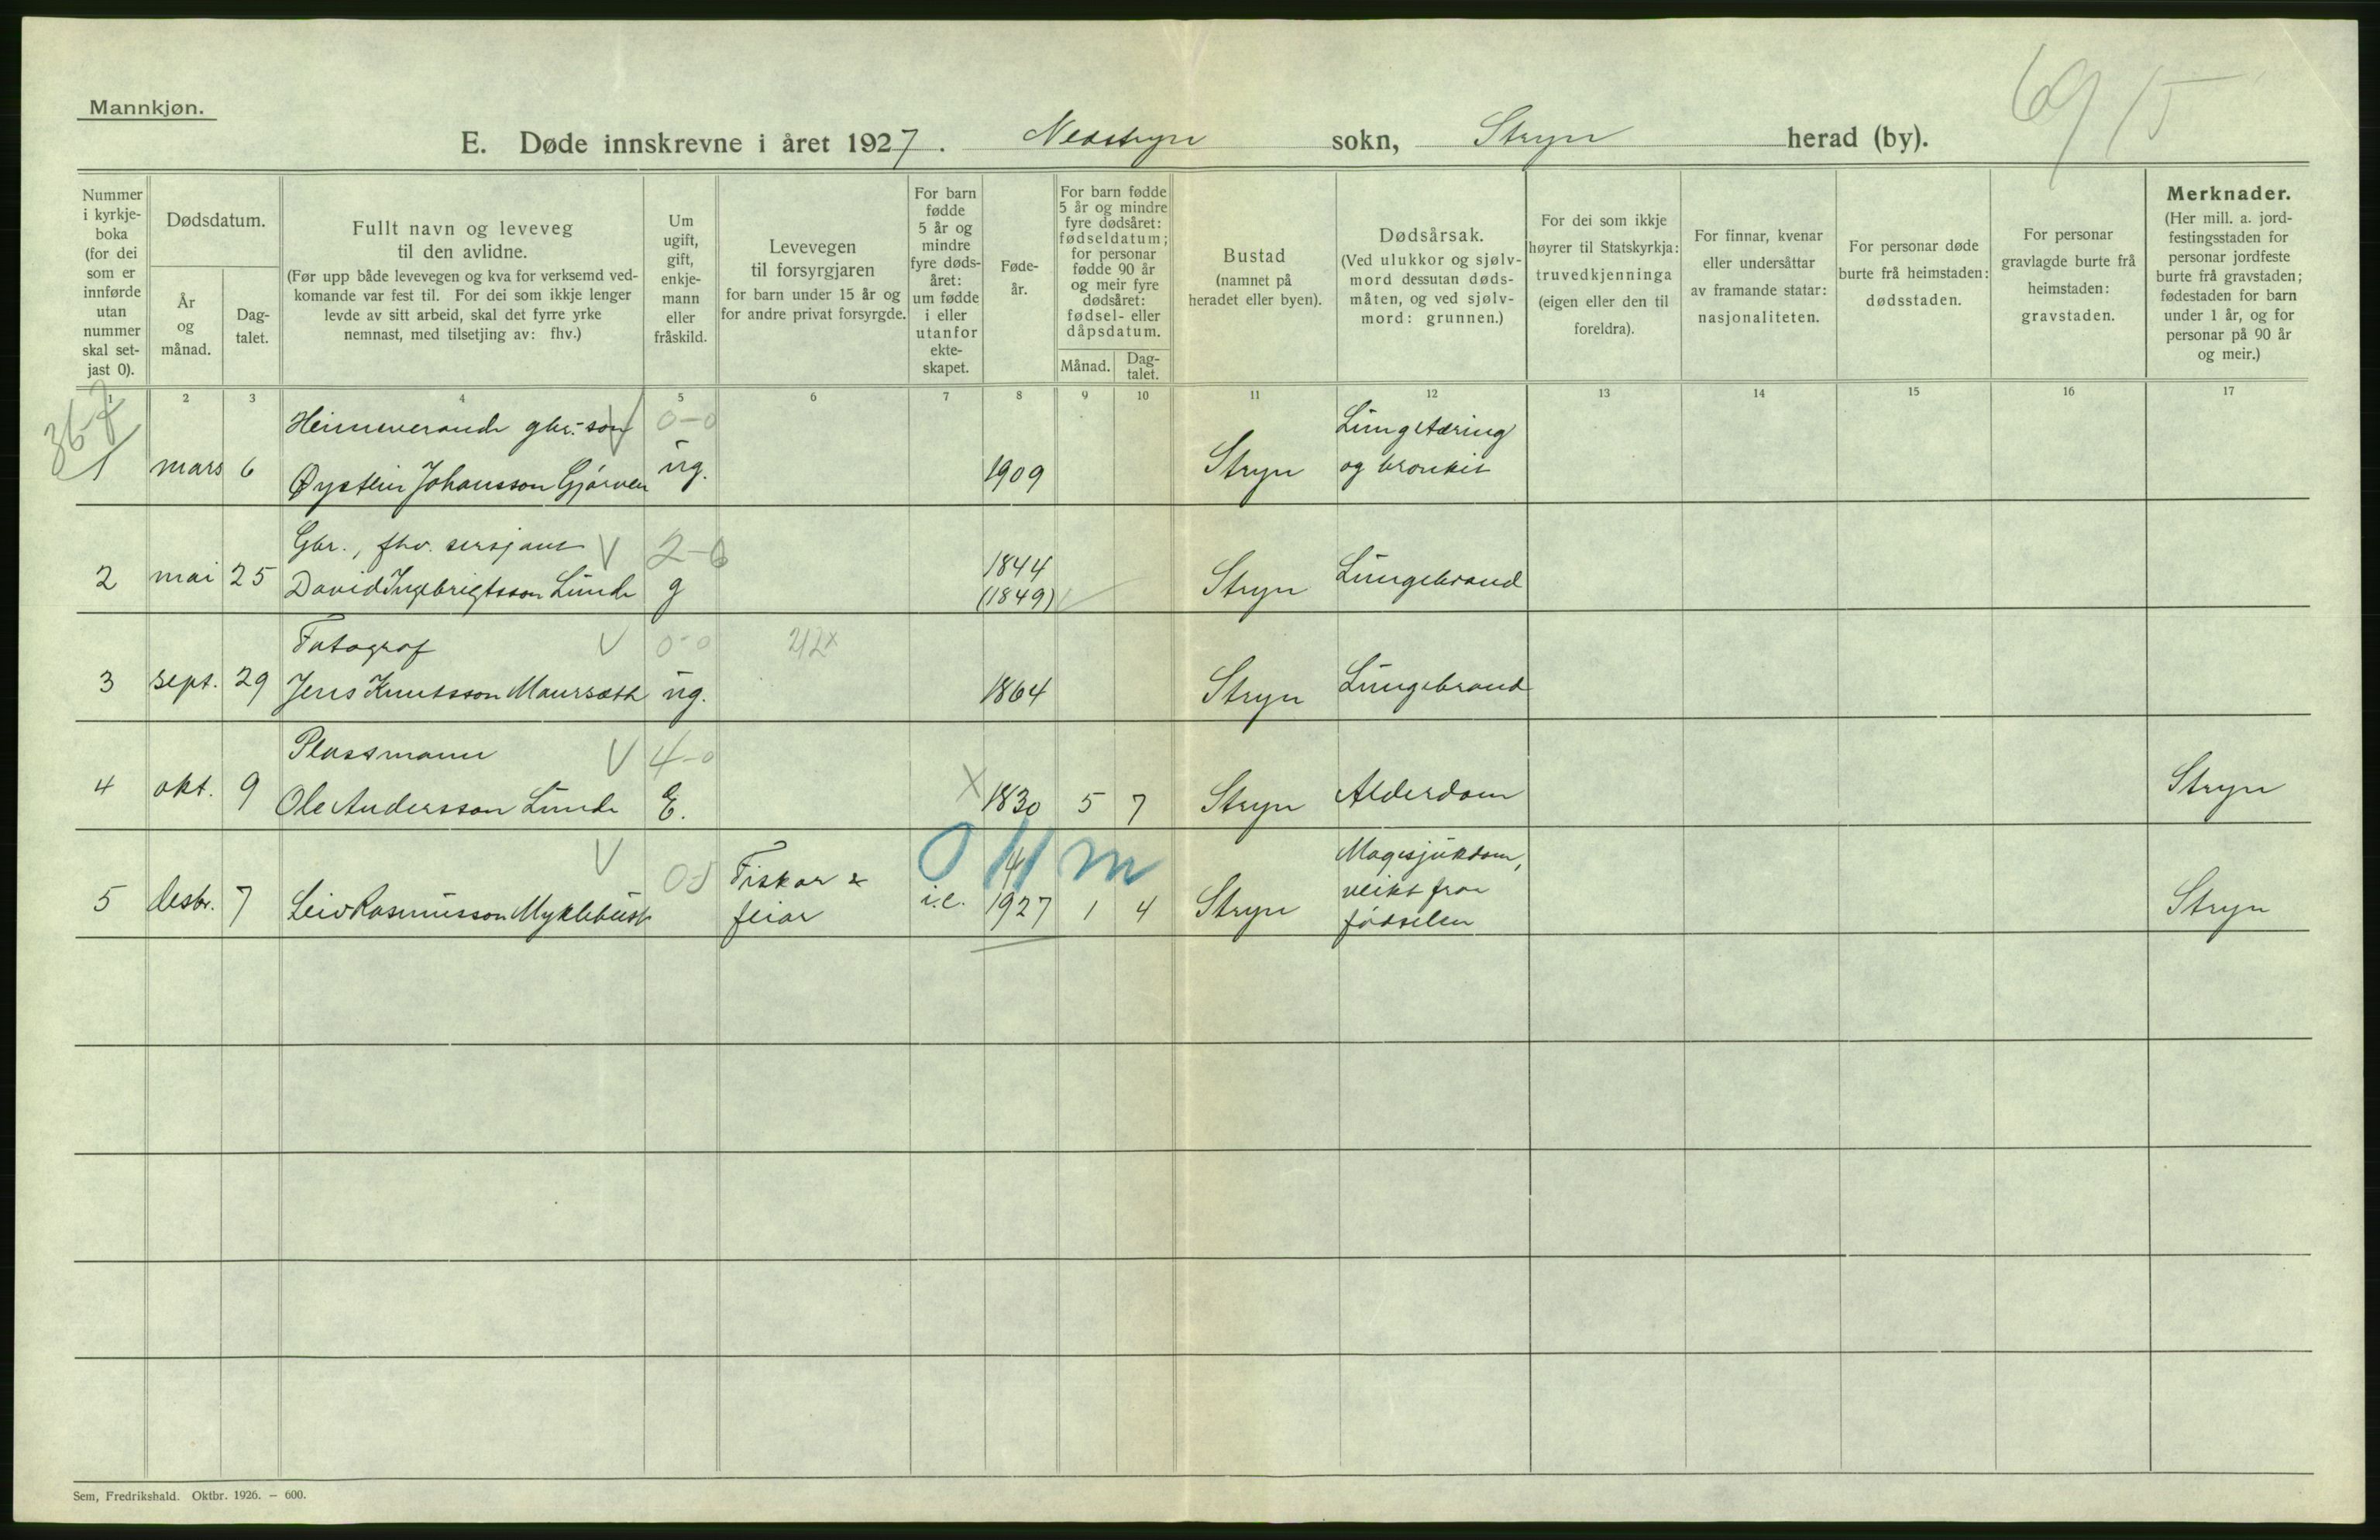 Mannkjøn.
69/15
E. Døde innskrevne i året 1927. Nedstryn sokn, Stryn herad (by).
Nummer i kyrkje-boka (for dei som er innførde utan nummer skal set-jast 0).
Dødsdatum.
År og månad.
Dag-talet.
Fullt navn og leveveg til den avlidne.
(Før upp både levevegen og kva for verksemd ved-komande var fest til. For dei som ikkje lenger levde av sitt arbeid, skal det fyrre yrke nemnast, med tilsetjing av: fhv.)
Um ugift, gift, enkje-mann eller fråskild.
Levevegen til forsyrgjaren for barn under 15 år og for andre privat forsyrgde.
For barn fødde 5 år og mindre fyre døds-året: um fødde i eller utanfor ekte-skapet.
Føde-år.
For barn fødde 5 år og mindre fyre dødsåret: fødseldatum; for personar fødde 90 år og meir fyre dødsåret: fødsel- eller dåpsdatum.
Månad.
Dag-talet.
Bustad (namnet på heradet eller byen).
Dødsårsak.
(Ved ulukkor og sjølv-mord dessutan døds-måten, og ved sjølv-mord: grunnen.)
For dei som ikkje høyrer til Statskyrkja: truvedkjenninga (eigen eller den til foreldra).
For finnar, kvenar eller undersåttar av framande statar: nasjonaliteten.
For personar døde burte frå heimstaden: dødsstaden.
For personar gravlagde burte frå heimstaden: gravstaden.
Merknader.
(Her mill. a. jord-festingsstaden for personar jordfeste burte frå gravstaden; fødestaden for barn under 1 år, og for personar på 90 år og meir.)
1 2 3 4 5 6 7 8 9 10 11 12 13 14 15 16 17
367
Heimeverande gbr.-son V 0-0 Lungetæring
1 mars 6 Øystein Johansson Gjørven ug. 1909 Stryn og bronkit
Gbr., fhv. sersjant V 2-0 1844
2 mai 25 David Ingebrigtsson Lunde g (1849) Stryn Lungebrand
Fotograf V 0-0 212x
3 sept. 29 Jens Knutsson Maurseth ug. 1864 Stryn Lungebrand
Plassmann V 4-0
4 okt. 9 Ole Andersson Lunde E. X 1830 5 7 Stryn Alderdom Stryn
V Fiskar & 0 11 m 4 Magesjukdom,
5 desbr. 7 Leiv Rasmusson Myklebust feiar i.e. 1927 1 4 Stryn veikt fraa Stryn
fødselen
Sem, Fredrikshald. Oktbr. 1926. – 600.